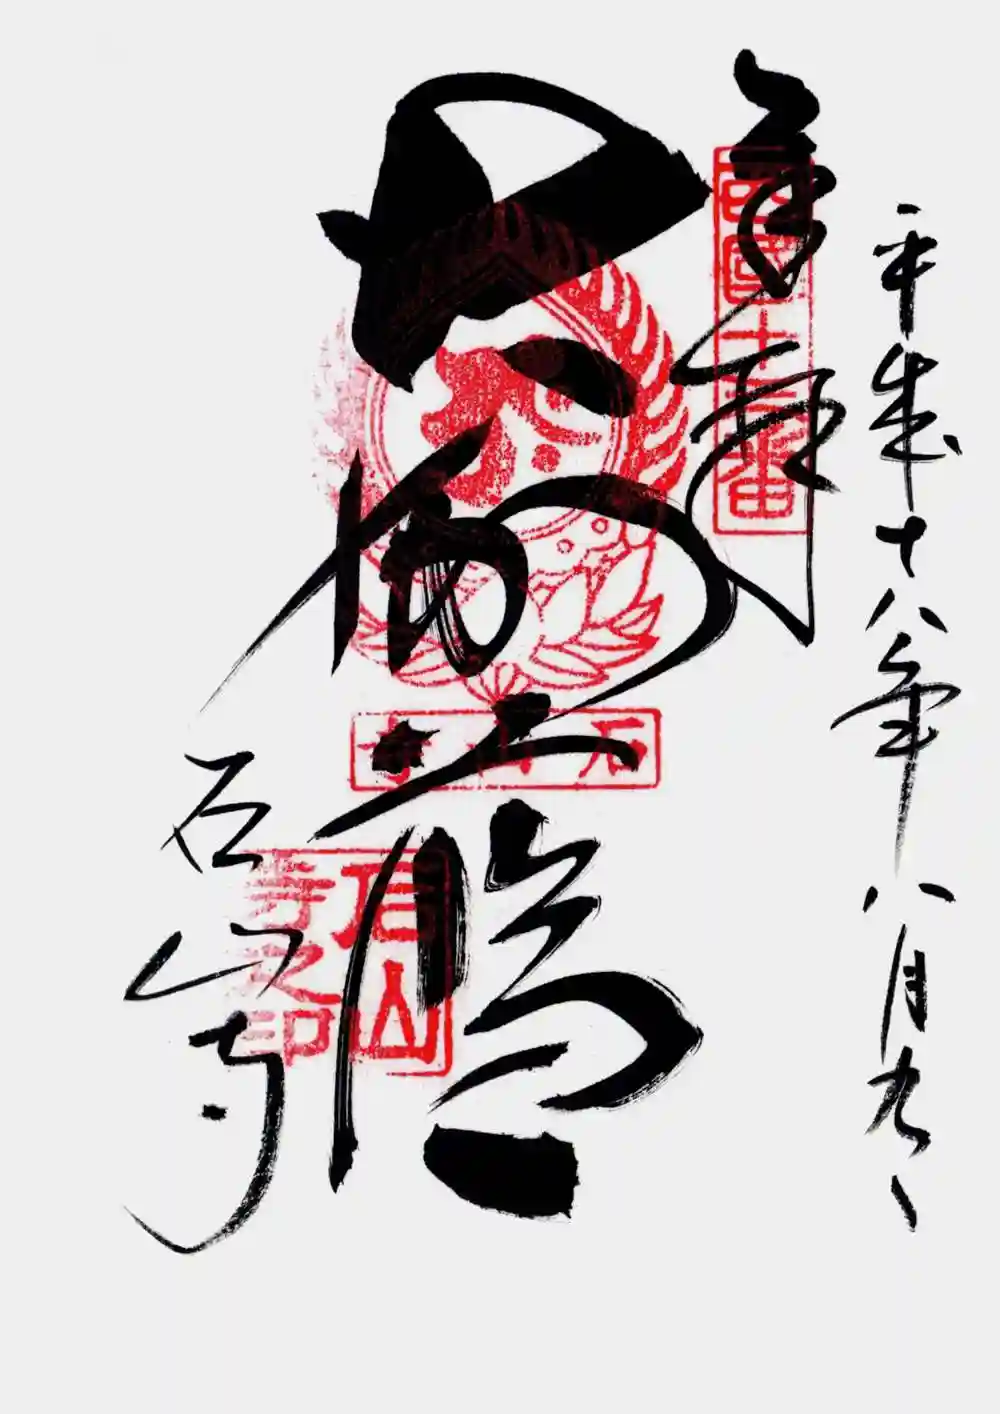 平成十八年八月九日
奉拝
西國十三番
大伽藍
石山寺
石山寺之印
石山寺